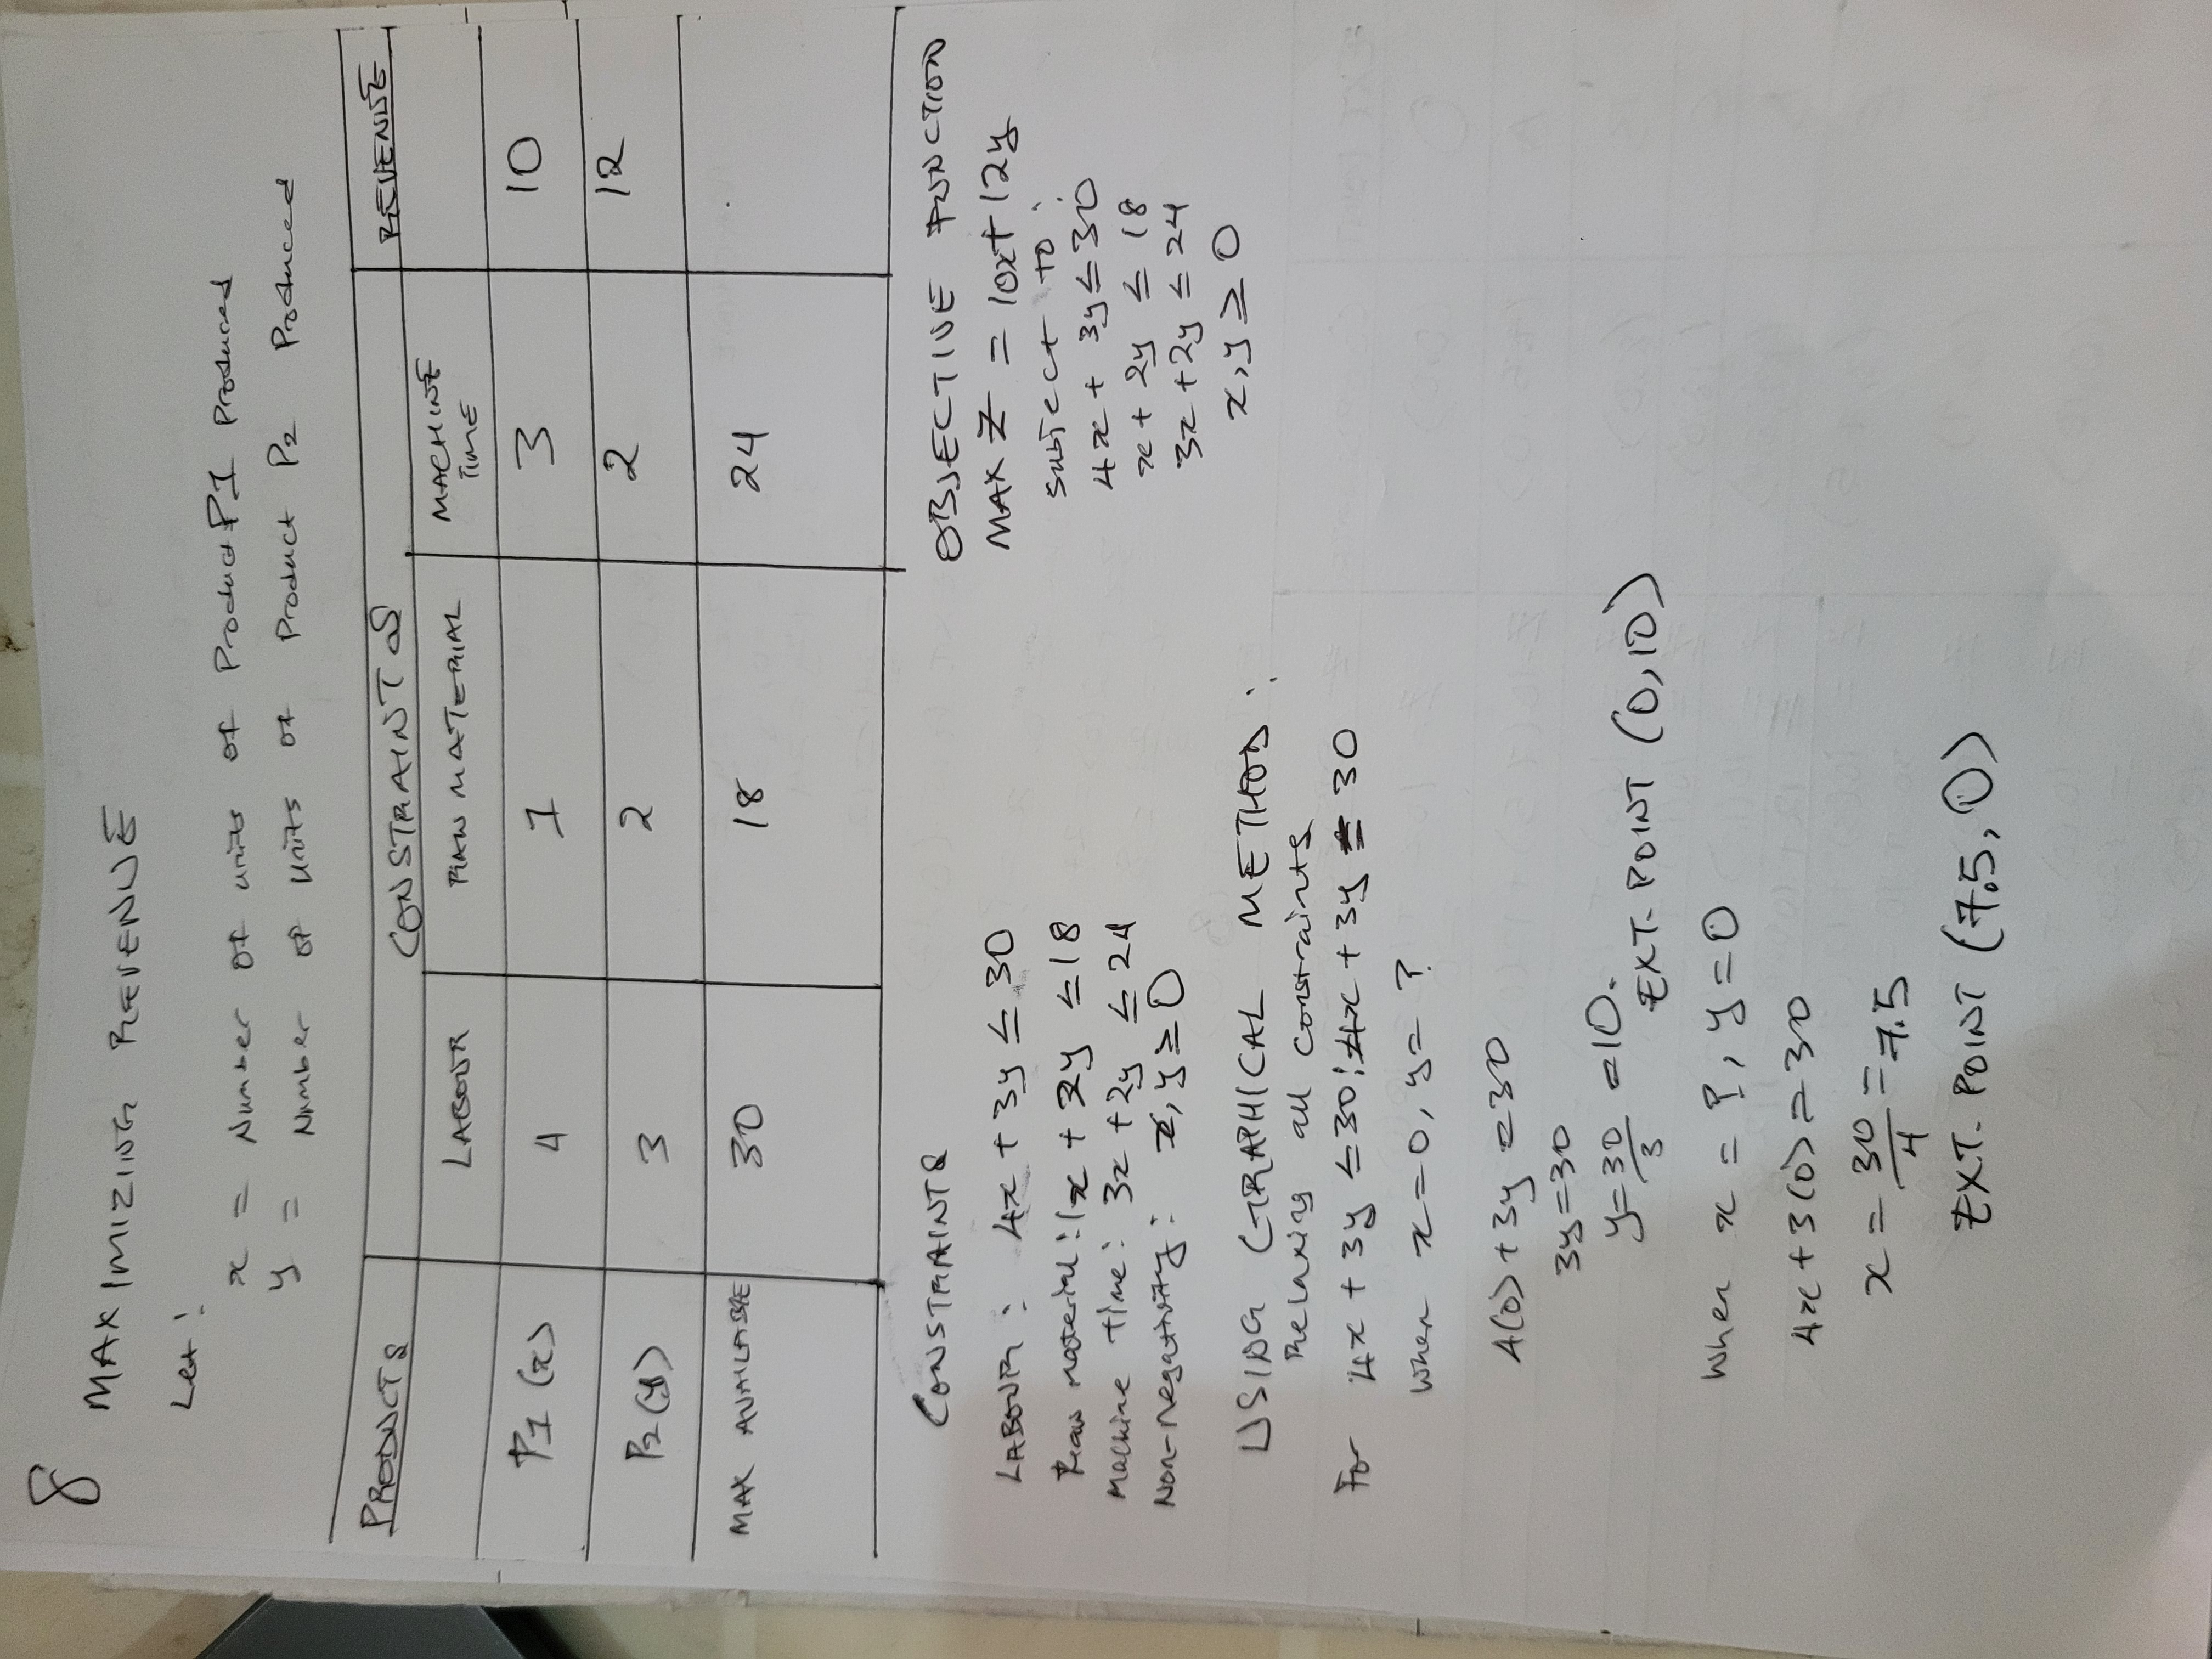 8
MAXIMIZING REVENUE
Let:
x = Number of units of Product P1 Produced
y = Number of units of Product P2 Produced
PRODUCTS CONSTRAINTS REVENUE
LABOUR RAW MATERIAL MACHINE TIME
P1 (x) 4 1 3 10
P2 (y) 3 2 2 12
MAX AVAILABLE 30 18 24
CONSTRAINTS
LABOUR: 4x + 3y ≤ 30
Raw material: 1x + 2y ≤ 18
Machine time: 3x + 2y ≤ 24
Non-negativity: x, y ≥ 0
OBJECTIVE FUNCTION
MAX Z = 10x + 12y
Subject to:
4x + 3y ≤ 30
x + 2y ≤ 18
3x + 2y ≤ 24
x, y ≥ 0
USING GRAPHICAL METHOD:
Relaxing all constraints
For 4x + 3y ≤ 30: 4x + 3y = 30
When x = 0, y = ?
4(0) + 3y = 30
3y = 30
y = 30/3 = 10.
EXT. POINT (0, 10)
When x = ?, y = 0
4x + 3(0) = 30
x = 30/4 = 7.5
EXT. POINT (7.5, 0)